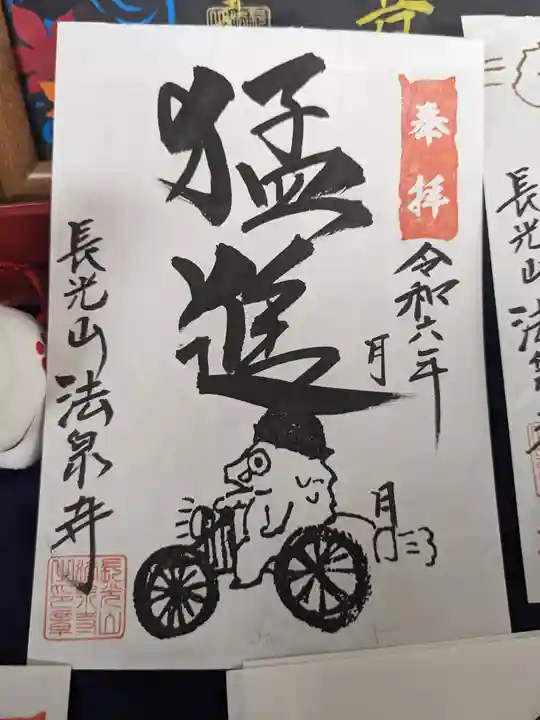 奉拝
令和六年
月
月
猛進
長光山 法泉寺
長光山
法泉寺
之印章
長光山
法泉寺